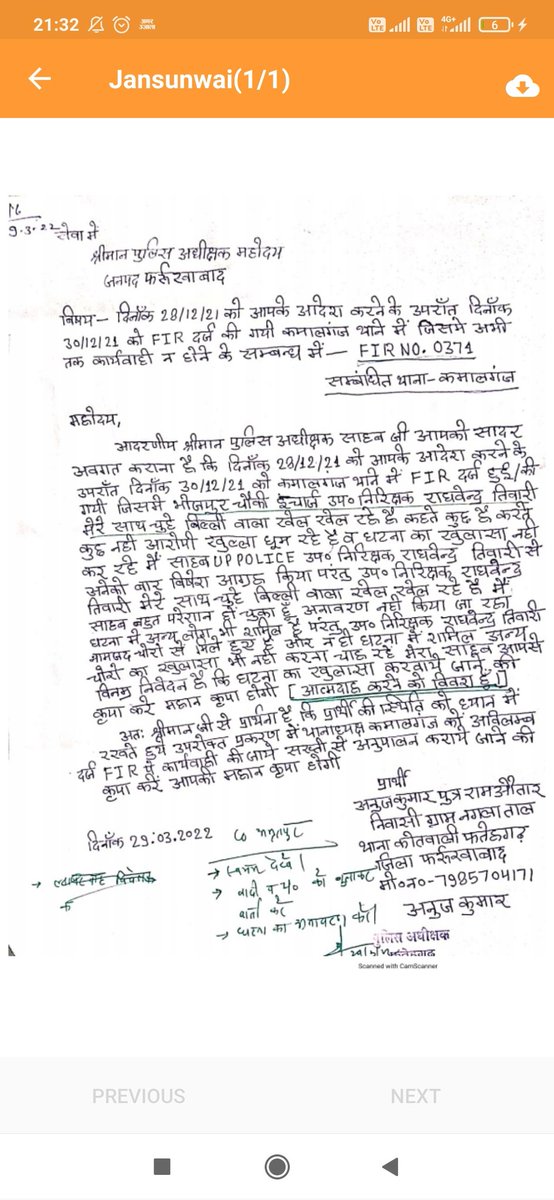 21:32
अमर उजाला
Vo LTE
Vo LTE
4G+
6
Jansunwai(1/1)
9.3.22
सेवा में
श्रीमान पुलिस अधीक्षक महोदय
जनपद फर्रुखाबाद
विषय- दिनाँक 28/12/21 को आपके आदेश करने के उपराँत दिनाँक
30/12/21 को FIR दर्ज की गयी कमालगंज थाने में जिसमे अभी
तक कार्यवाही न होने के सम्बन्ध में- FIR NO. 0371
सम्बंधित थाना- कमालगंज
महोदय,
आदरणीय श्रीमान पुलिस अधीक्षक साहब जी आपको सादर
अवगत कराना है कि दिनाँक 28/12/21 को आपके आदेश करने के
उपराँत दिनाँक 30/12/21 को कमालगंज थाने में FIR दर्ज हुई/की
गयी जिसमें भोजपुर चौकी इंचार्ज उप० निरिक्षक राघवेन्द्र तिवारी
मेरे साथ चुहे बिल्ली वाला खेल खेल रहे है कहते कुछ है करते
कुछ नही आरोपी खुल्ला घूम रहे है व घटना का खुलासा नही
कर रहे में साहब UP POLICE उप० निरिक्षक राघवेन्द्र तिवारी से
अनेको बार विषेश आग्रह किया परंतु उप० निरिक्षक राघवेन्द्र
तिवारी मेरे साथ चुहे बिल्ली वाला खेल खेल रहे है में
साहब बहुत परेशान हो चुका हूँ अनावरण नही किया जा रहा
घटना में अन्य लोग भी शामिल है परंतु उप० निरिक्षक राघवेन्द्र तिवारी
नामजद चोरों से मिले हुए है और न ही घटना में शामिल अन्य
चोरों का खुलासा भी नही करना चाह रहे मेरा साहब आपसे
विनम्र निवेदन है कि घटना का खुलासा करवाये जाने की
कृपा करें महान कृपा होगी [आत्मदाह करने को विवश हूँ]
अतः श्रीमान जी से प्रार्थना है कि प्रार्थी की स्थिति को ध्यान में
रखते हुये उपरोक्त प्रकरण में थानाध्यक्ष कमालगंज को अविलम्ब
दर्ज FIR में कार्यवाही की जाये सख्ती से अनुपालन कराये जाने की
कृपा करें आपकी महान कृपा होगी
प्रार्थी
अनुज कुमार पुत्र राम औतार
निवासी ग्राम नगला ताल
थाना कोतवाली फतेहगढ़
जिला फर्रुखाबाद
मो०न०-7985704171
अनुज कुमार
दिनाँक 29.03.2022
CO
देखें।
वार्ता करें
घटना का
पुलिस अधीक्षक
फतेहगढ़
Scanned with CamScanner
PREVIOUS
NEXT